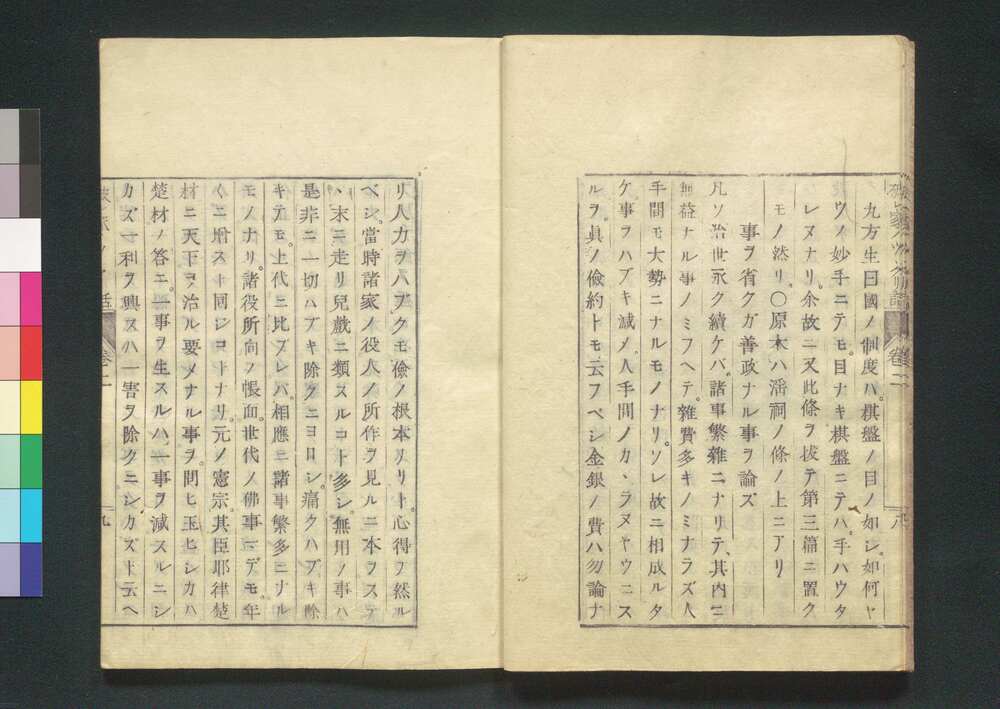 九方生曰國ノ制度ハ。棋盤ノ目ノ如シ。如何ヤ
ウノ妙手ニテモ。目ナキ棋盤ニテハ。手ハウタ
レヌナリ。余故ニ又此條ヲ拔テ第三篇ニ置ク
モノ然リ。〇原本ハ淫祠ノ條ノ上ニアリ
事ヲ省クガ善政ナル事ヲ論ズ
凡ソ治世永ク續ケバ。諸事繁雜ニナリテ、其内ニ
無益ナル事ノミフヘテ。雜費多キノミナラズ人
手間モ大勢ニナルモノナリ。ソレ故ニ相成ルタ
ケ。事ヲハブキ減メ。人手間ノカヽラヌヤウニス
ルヲ。眞ノ儉約トモ云フベシ金銀ノ費ハ勿論ナ
卷二
九
リ人力ヲハブクモ儉ノ根本ナリト。心得フ然ル
ベシ。當時諸家ノ役人ノ所作ヲ見ルニ本ヲステ
ヽ末ニ走リ兒戲ニ類スルコト多シ。無用ノ事ハ
是非ニ一切ハブキ除クニヨロシ。痛クハブキ除
キテモ。上代ニ比ブレバ。相應ニ諸事繁多ニナル
モノナリ。諸役所向ノ帳面。世代ノ佛事マデモ。年
〱ニ増スト同ジコトナリ。元ノ憲宗。其臣耶律楚
材ニ天下ヲ治ル要メナル事ヲ。問ヒ玉ヒシカハ
楚材ノ答ニ。一事ヲ生スルハ。一事ヲ減スルニシ
カズ一利ヲ興スハ一害ヲ除クニシカズト云ヘ
卷二
九